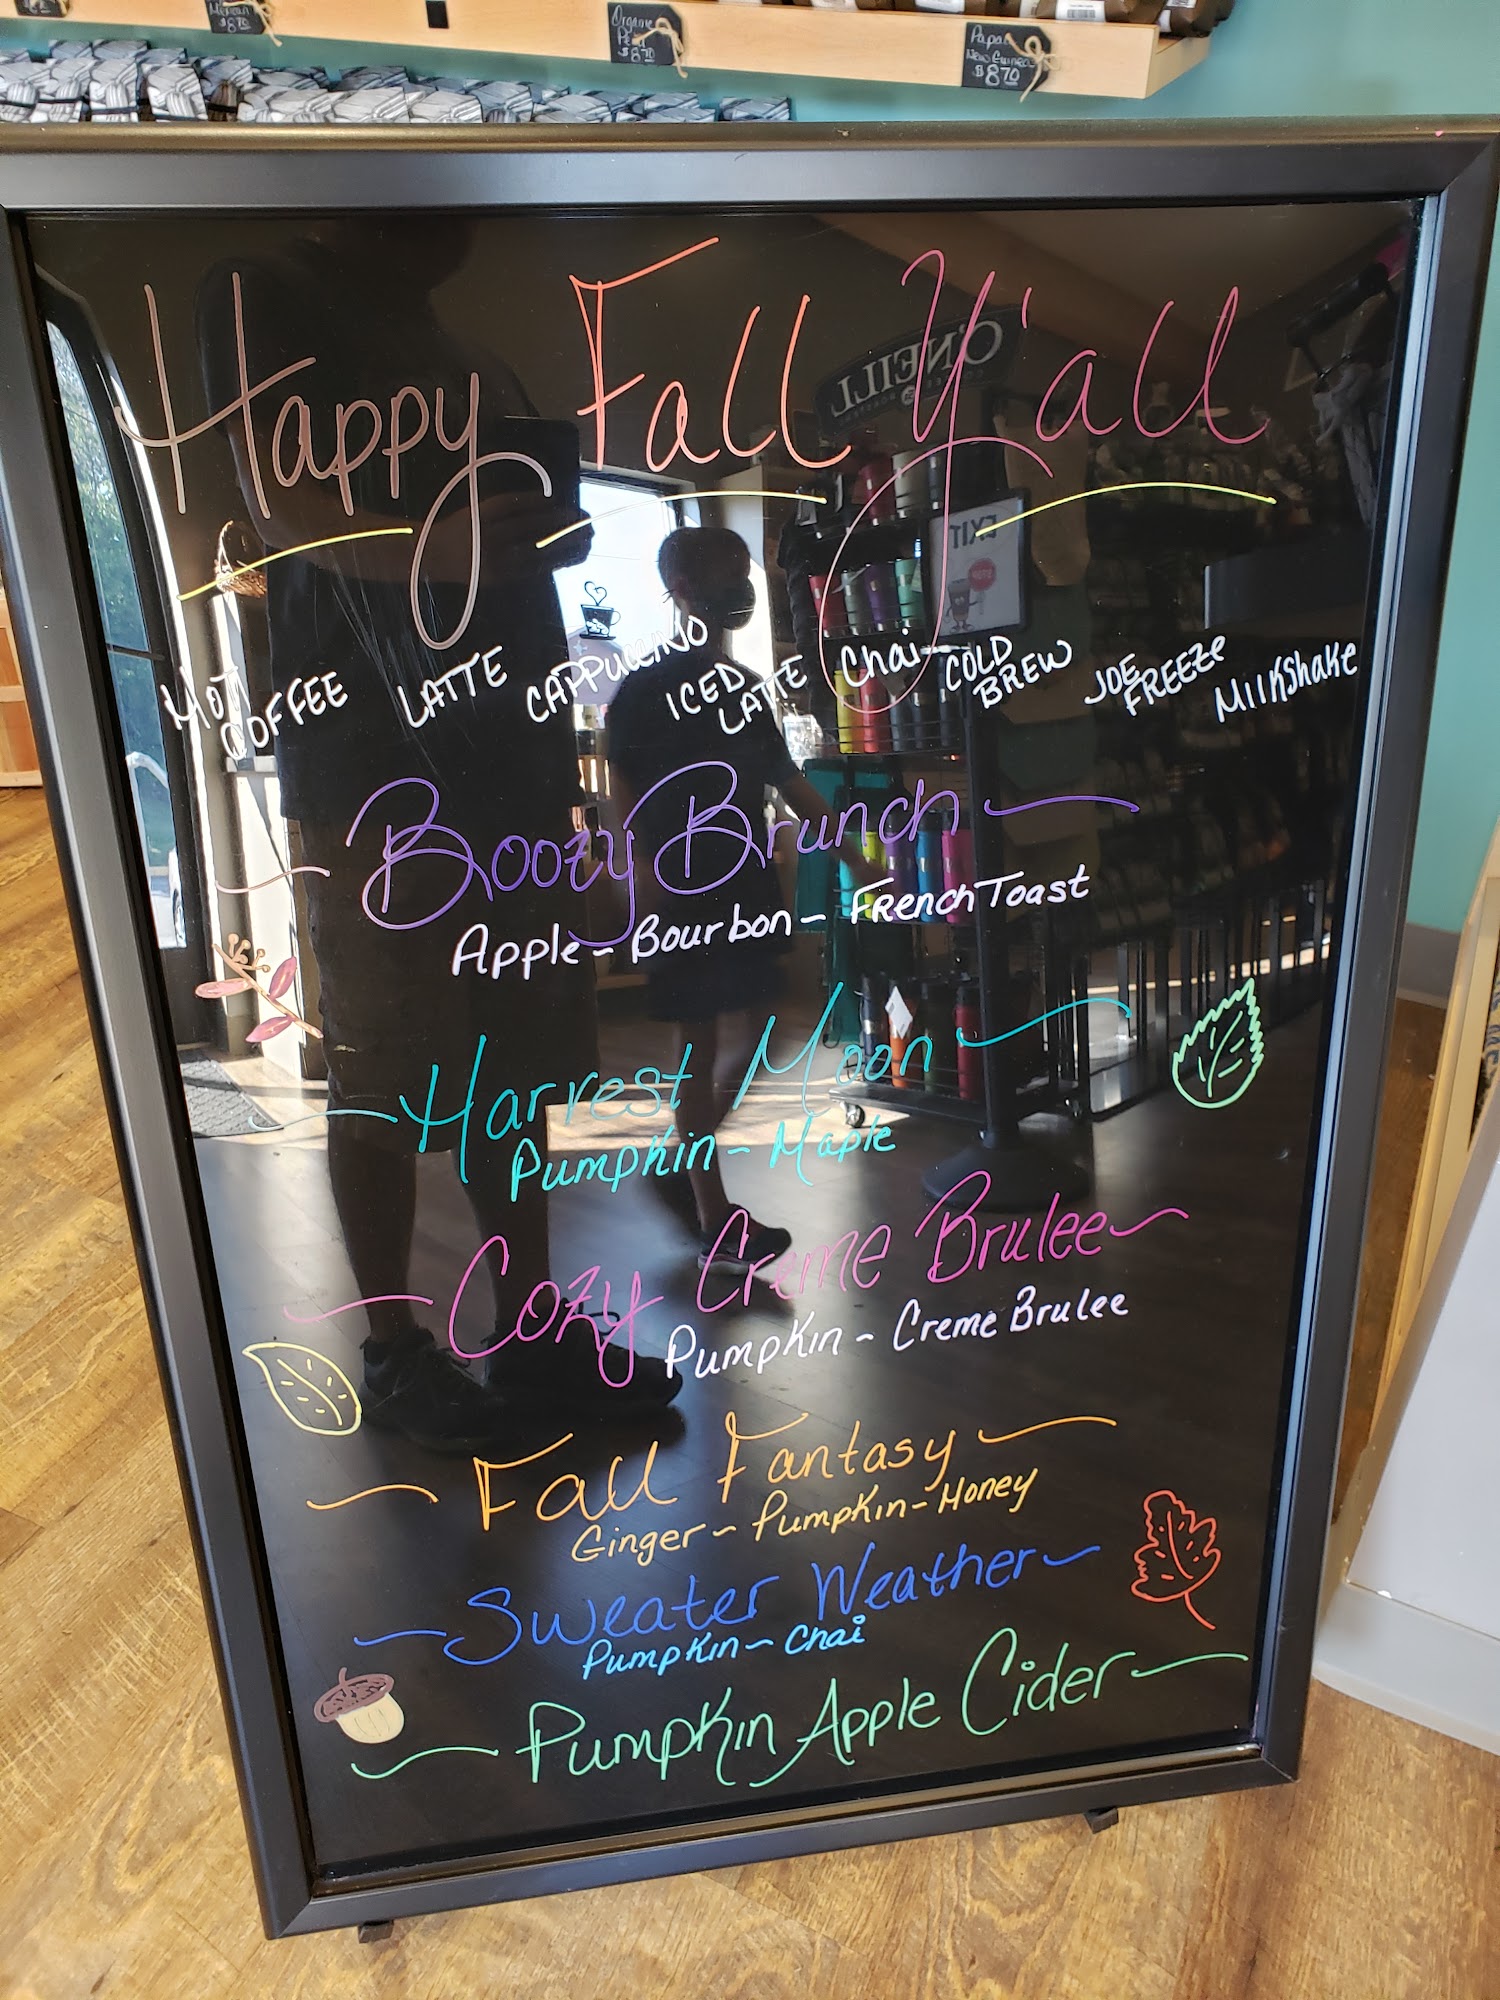 Organic
Peru
$8.70
Papa
New Guinea
$8.70
Happy Fall Y'all
O'NEILL
EXIT
STOP
HOT COFFEE
LATTE
CAPPUCCINO
ICED LATTE
Chai
COLD BREW
JOE FREEZE
MilkShake
Boozy Brunch
Apple - Bourbon - French Toast
Harvest Moon
Pumpkin - Maple
Cozy Creme Brulee
Pumpkin - Creme Brulee
Fall Fantasy
Ginger - Pumpkin - Honey
Sweater Weather
Pumpkin - Chai
Pumpkin Apple Cider